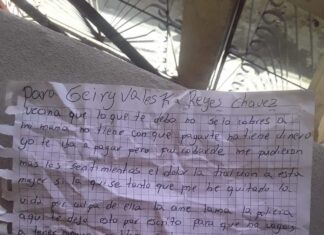 Para Geiry Valeska Reyes Chavez
vecina que lo que te debo no se lo cobres a
mi mama no tiene con que pagarte no tiene dinero
yo te iba a pagar pero fui cobarde me pudieron
mas los sentimientos el dolor la traicion a esta
mujer si la quise tanto que me he quitado la
vida por culpa de ella la ame tanto la
aqui te dejo esto por escrito para que no vayas
a tener